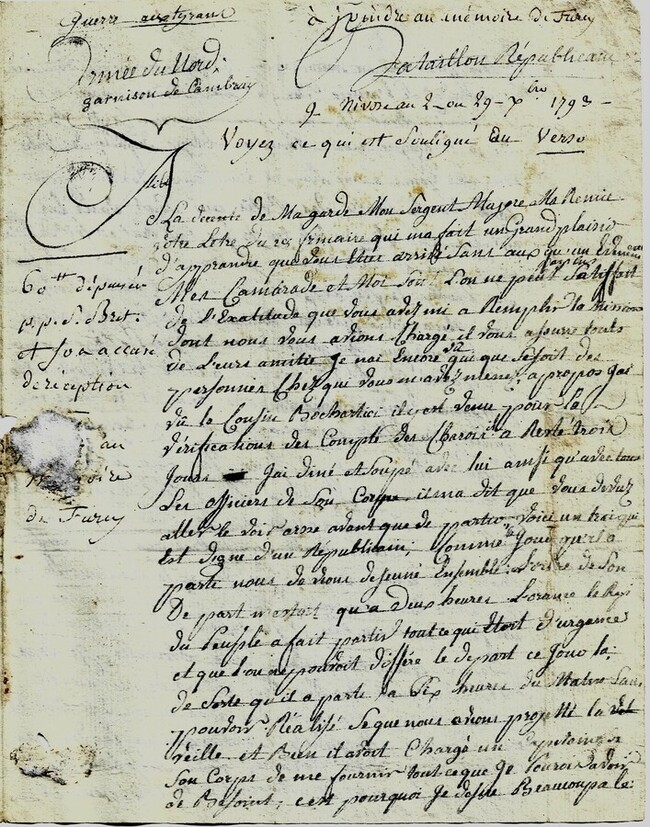 Guerre aux tyrans
à joindre au mémoire de Furcy
Armée du Nord
garnison de Cambray
Bataillon Républicain
9 Nivose au 2 ou 29 Xbre 1793
Voyez ce qui est souligné au Verso
60tt déposées
p.p. S. Bret.
et son accusé
de réception
au
de Furcy
La de Ma garde Mon Sergent Majore Ma Remis
votre Letre du 22 frimaire qui ma fait un Grand plaisir
d'apprandre que vous etier arrivé Sans aux qu'un
Mes Camarade et Moi Son L'on ne peut plus Satisfait
de L'Exatitude que vous avez mi a Remplir la mission
dont nous vous avions Chargé il vous assure touts
de L'eurs amitié Je nai Encore vu que que se soit des
personnes Chez qui vous m'avez mener, apropos Jai
vu le Cousin il est venu pour la
vérifications des Compte des Charois a Resté trois
Jours Jai diné et Soupé avec lui ainsi qu'avec tous
Les officiers de Son Corps il ma dit que vous devez
aller le voir avant que de partir voici un trai qui
Est digne d'un Républicain, Comme le Jour qu'il a
parti nous devions dejeuné Ensemble, L'ordre de Son
Depart qu'a Deux heures
du Peuple a fait partir tout ce qui Etoit d'urgence
et que l'on ne pouvoit differé le depart ce Jour la,
de Sorte qu'il a parti a Six heures du Matin Sans
pouvoir Réalisé Se que nous avions projetté la
veille et Bien il avoit Chargé un de
Son Corps de me fournir tout ce que Je pourois avoir
de Besoint, c'est pourquoi Je desire Beaucoup a le